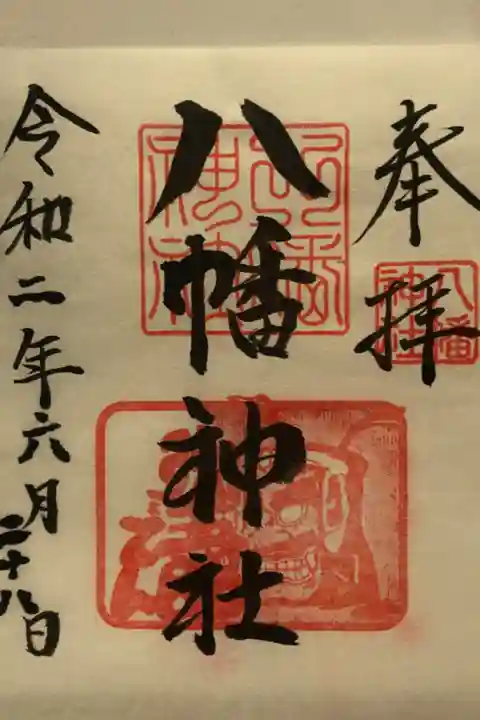 奉拝
八幡神社
八幡神社
令和二年六月二十八日